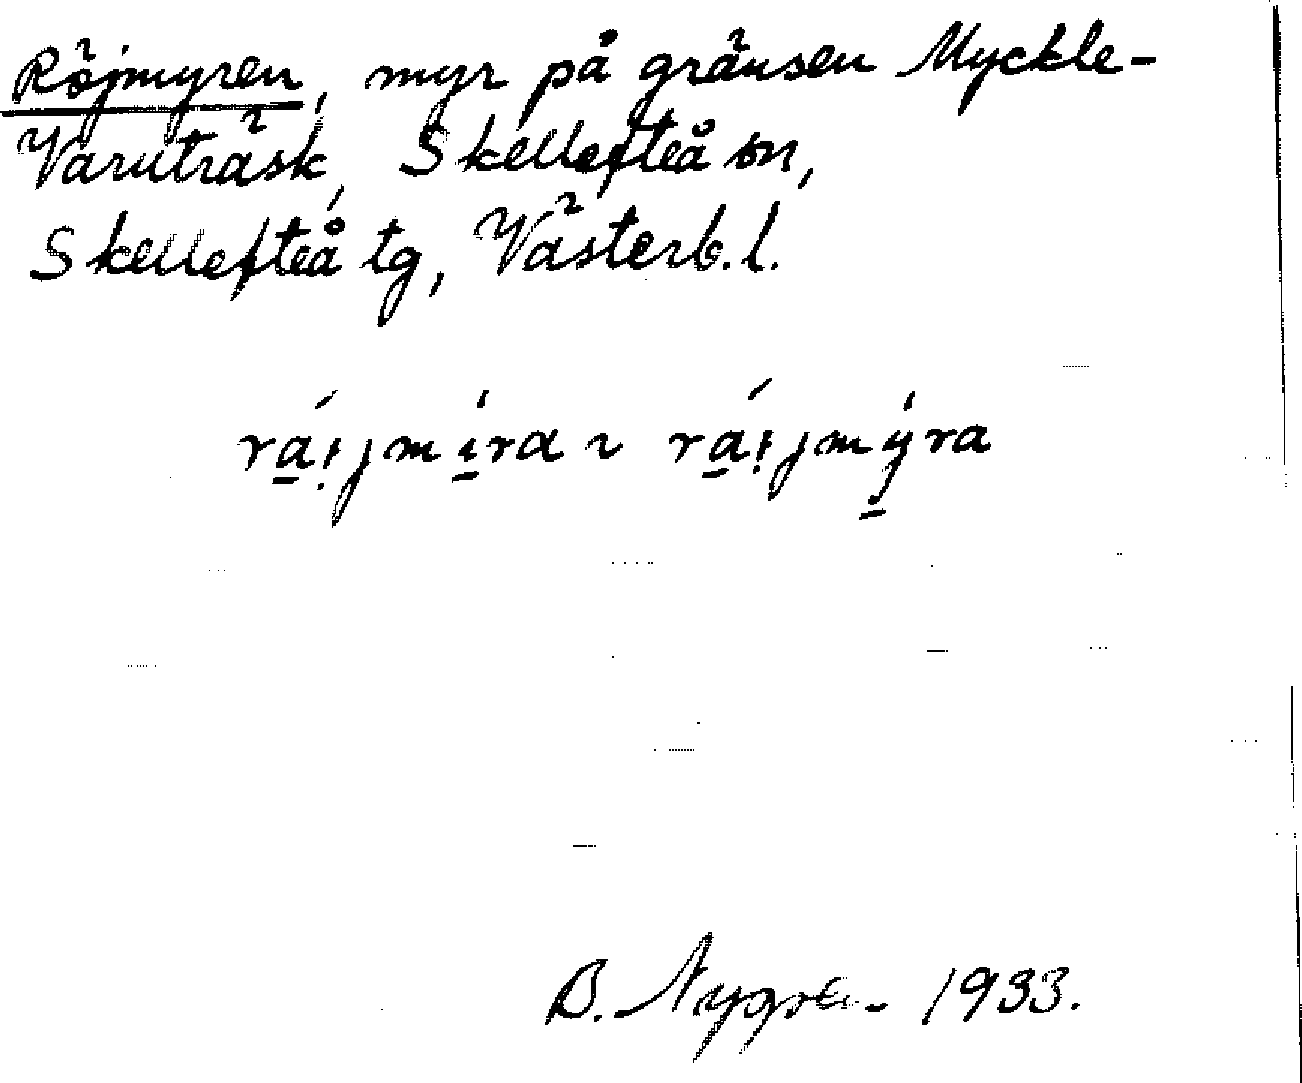 Röjmyren, myr på gränsen Myckle-
Varuträsk, Skellefteå sn,
Skellefteå tg, Västerb. l.
rá̱i̩jmí̱ra ~ rá̱i̩jmý̱ra
B. Nygren 1933.